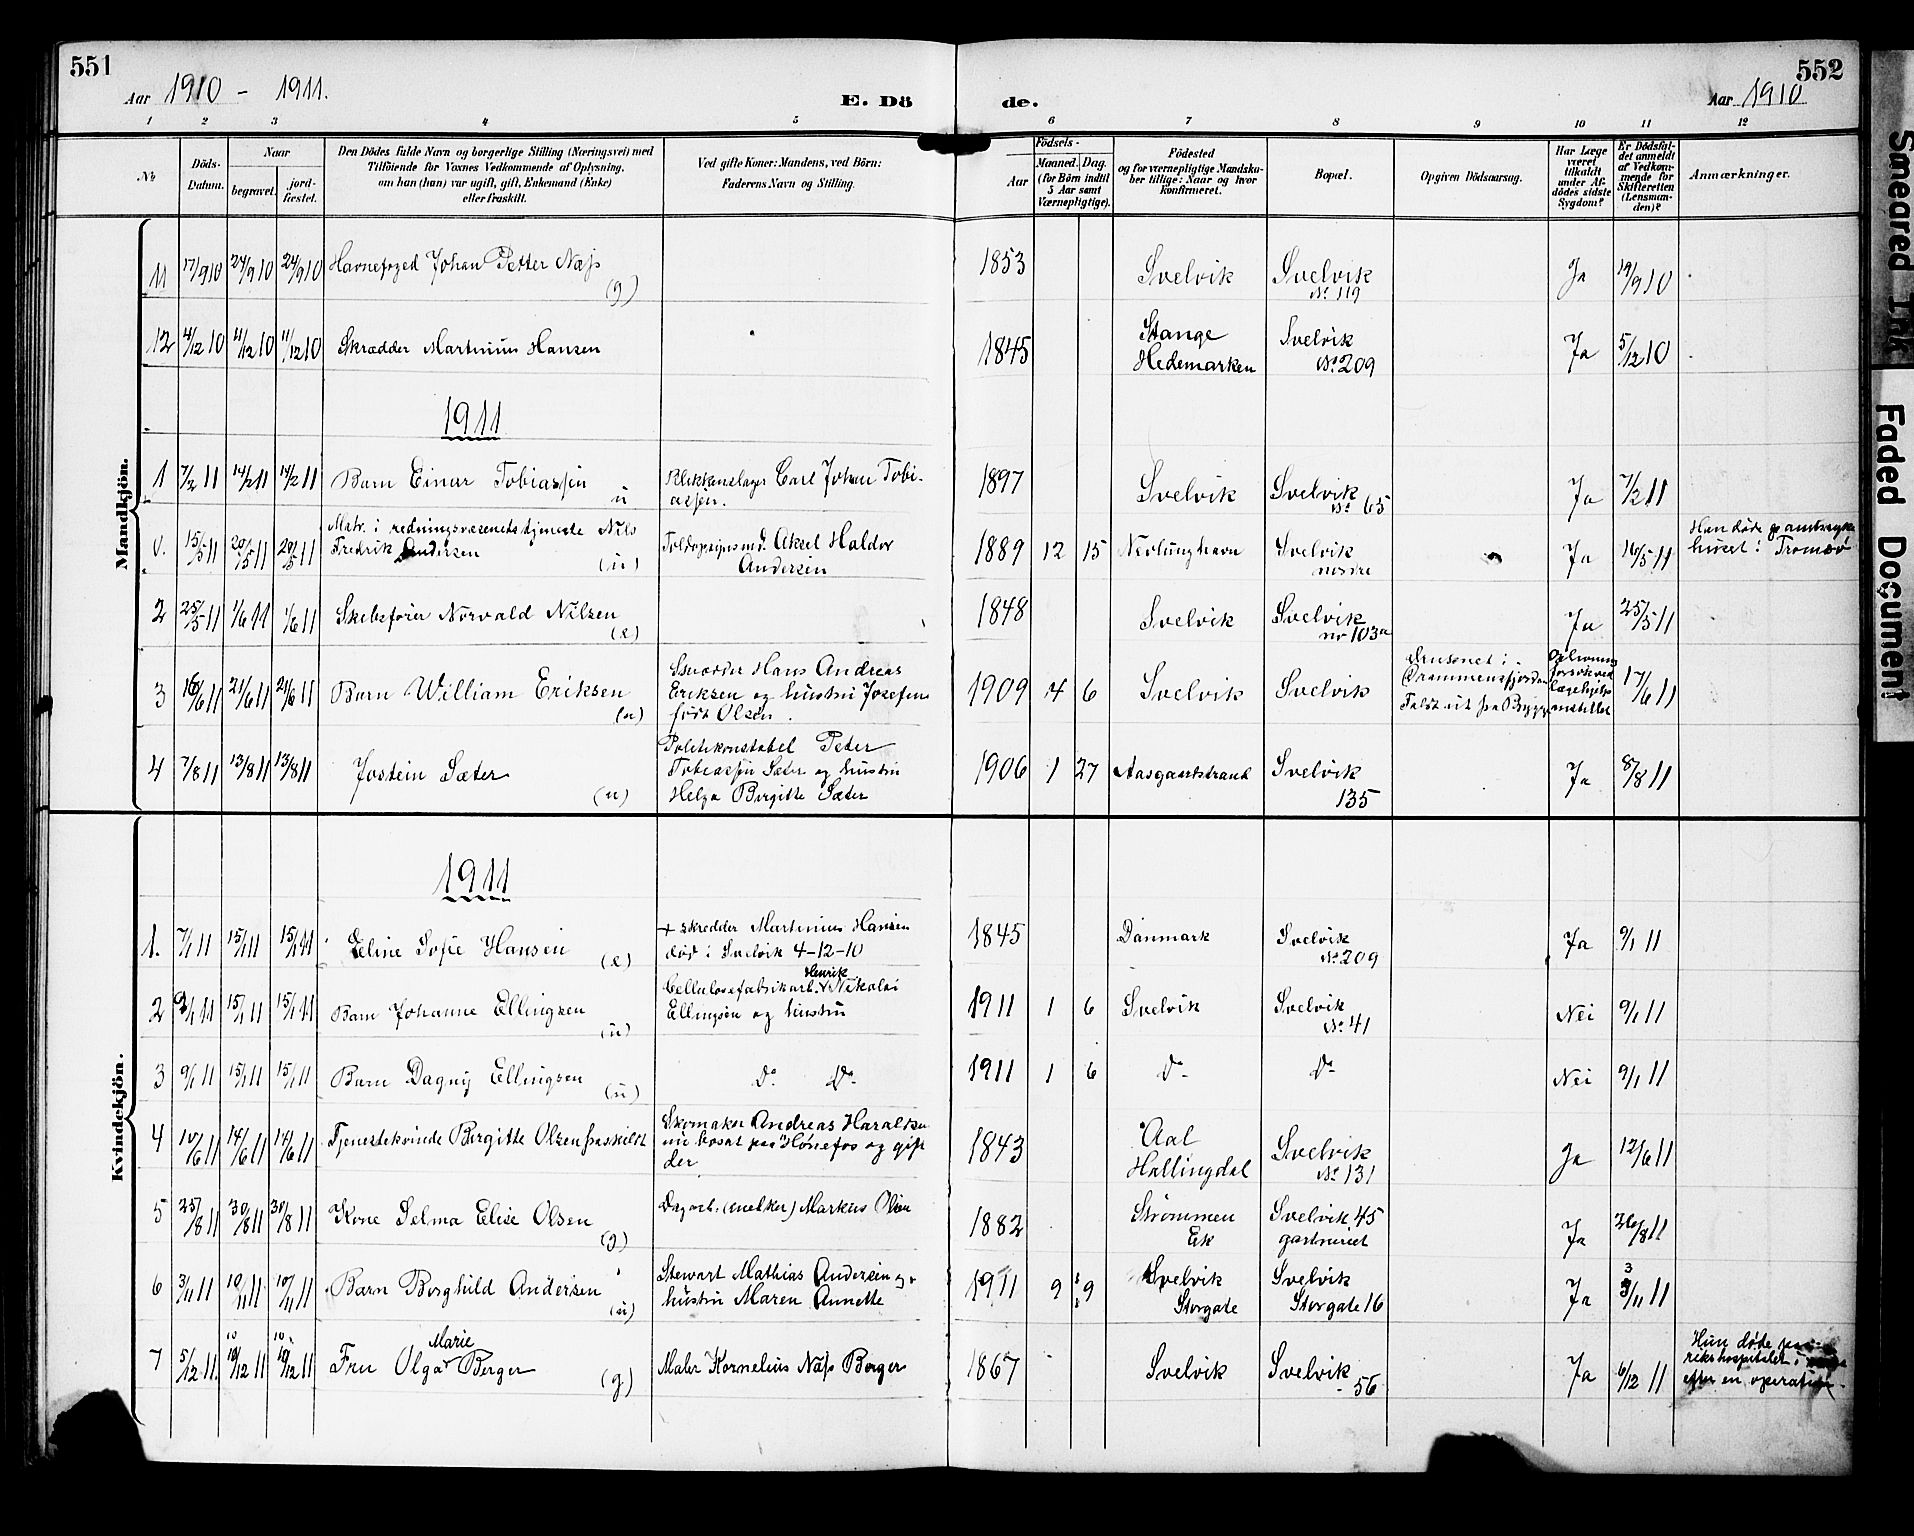 551
Aar 1910 - 1911.
E. Dö
de.
552
Aar 1910
1 2 3 4 5 6 7 8 9 10 11 12
No
Döds-Datum.
Naar
begravet.
jord-fæstet.
Den Dödes fulde Navn og borgerlige Stilling (Næringsvei) med
Tilföiende for Voxnes Vedkommende af Oplysning,
om han (hun) var ugift, gift, Enkemand (Enke)
eller fraskilt.
Ved gifte Koner: Mandens, ved Börn:
Faderens Navn og Stilling.
Födsels-
Aar
Maaned. Dag.
(for Börn indtil
5 Aar samt
Værnepligtige).
Födested
og for værnepligtige Mandska-
ber tillige: Naar og hvor
konfirmeret.
Bopæl.
Opgiven Dödsaarsag.
Har Læge
været
tilkaldt
under Af-
dödes sidste
Sygdom?
Er Dödsfal-
det anmeldt
af Vedkom-
mende for
Skifteretten
(Lensman-
den)?
Anmærkninger.
Mandkjön.
11 17/9 10 24/9 10 24/9 10 Havnefoged Johan Petter Næss (g) 1853 Svelvik Svelvik No 119 Ja 19/9 10
12 4/12 10 11/12 10 11/12 10 Skrædder Martinius Hansen 1845 Stange Hedemarken Svelvik No 209 Ja 5/12 10
1911
1 7/2 11 14/2 11 14/2 11 Barn Einar Tobiassen u Blikkenslager Carl Johan Tobiassen. 1897 Svelvik Svelvik No 65 Ja 7/2 11
0. 15/5 11 20/5 11 20/5 11 Matr. i redningsvæsenets tjeneste Nils Fredrik Andersen (u) Toldopsynsmd. Aksel Haldor Andersen 1889 12 15 Nevlunghavn Svelvik nordre Ja 16/5 11 Han døde på huset i Tromsø
2 25/5 11 1/6 11 1/6 11 Skibsfører Norvald Nilsen (e) 1848 Svelvik Svelvik no 103a Ja 25/5 11
3 16/6 11 21/6 11 21/6 11 Barn William Eriksen (u) Skrædder Hans Andreas Eriksen og hustru Josefine født Olsen. 1909 4 6 Svelvik Svelvik Druknet i Drammensfjorden Faldt ut fra Brygge Oplivnings forsøk ved Lægehjelp anstillet 17/6 11
4 7/8 11 13/8 11 13/8 11 Jostein Sæter (u) Politikonstabel Peter Tobiassen Sæter og hustru Helga Birgitte Sæter 1906 1 27 Aasgaardstrand Svelvik 135 Ja 8/8 11
Kvindekjön.
1911
1. 7/1 11 15/1 11 15/1 11 Eline Sofie Hansen (e) + skredder Martinius Hansen død i Svelvik 4-12-10 1845 Danmark Svelvik No 209 Ja 9/1 11
2 9/1 11 15/1 11 15/1 11 Barn Johanne Ellingsen (u) Cellulosefabrikarb. Henrik Nikolai Ellingsen og hustru 1911 1 6 Svelvik Svelvik No 41 Nei 9/1 11
3 9/1 11 15/1 11 15/1 11 Barn Dagny Ellingsen (u) Do. Do. 1911 1 6 Do Do Nei 9/1 11
4 10/6 11 14/6 11 14/6 11 Tjenestekvinde Birgitte Olsen fraskilt Skomaker Andreas Haraldsen nu bosat paa Hønefos og gift der 1843 Aal Hallingdal Svelvik No 131 Ja 12/6 11
5 25/8 11 30/8 11 30/8 11 Kone Selma Elise Olsen (g) Dagarb. (snekker) Markus Olsen 1882 Strømmen Ek Svelvik 45 Ja 26/8 11
6 3/11 11 10/11 11 10/11 11 Barn Borghild Andersen (u) Stewart Mathias Andersen og hustru Maren Annette 1911 9 9 Svelvik Storgate Svelvik Storgate 16 Ja 3/11 11
7 5/12 11 10/12 11 10/12 11 Fru Olga Marie Berger (g) Maler Kornelius Næss Berger 1867 Svelvik Svelvik 56 Ja 6/12 11 Hun døde paa rikshospitalet i efter en operation.
Smeared Ink
Faded Document